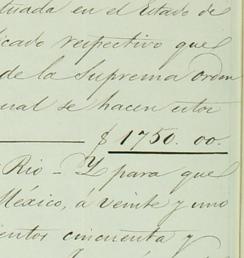 tuada en el Estado de
icado respectivo que
de la Suprema Orden
ual se hacen estos
$ 1750. 00.
Rio - Y para que
México, á veinte y uno
ientos cincuenta y